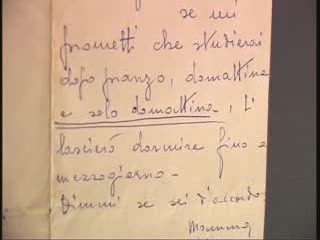 se mi
prometti che studierai
dopo pranzo, domattina
e solo domattina, ti
lascierò dormire fino a
mezzogiorno -
Dimmi se sei d'accordo
Mamma